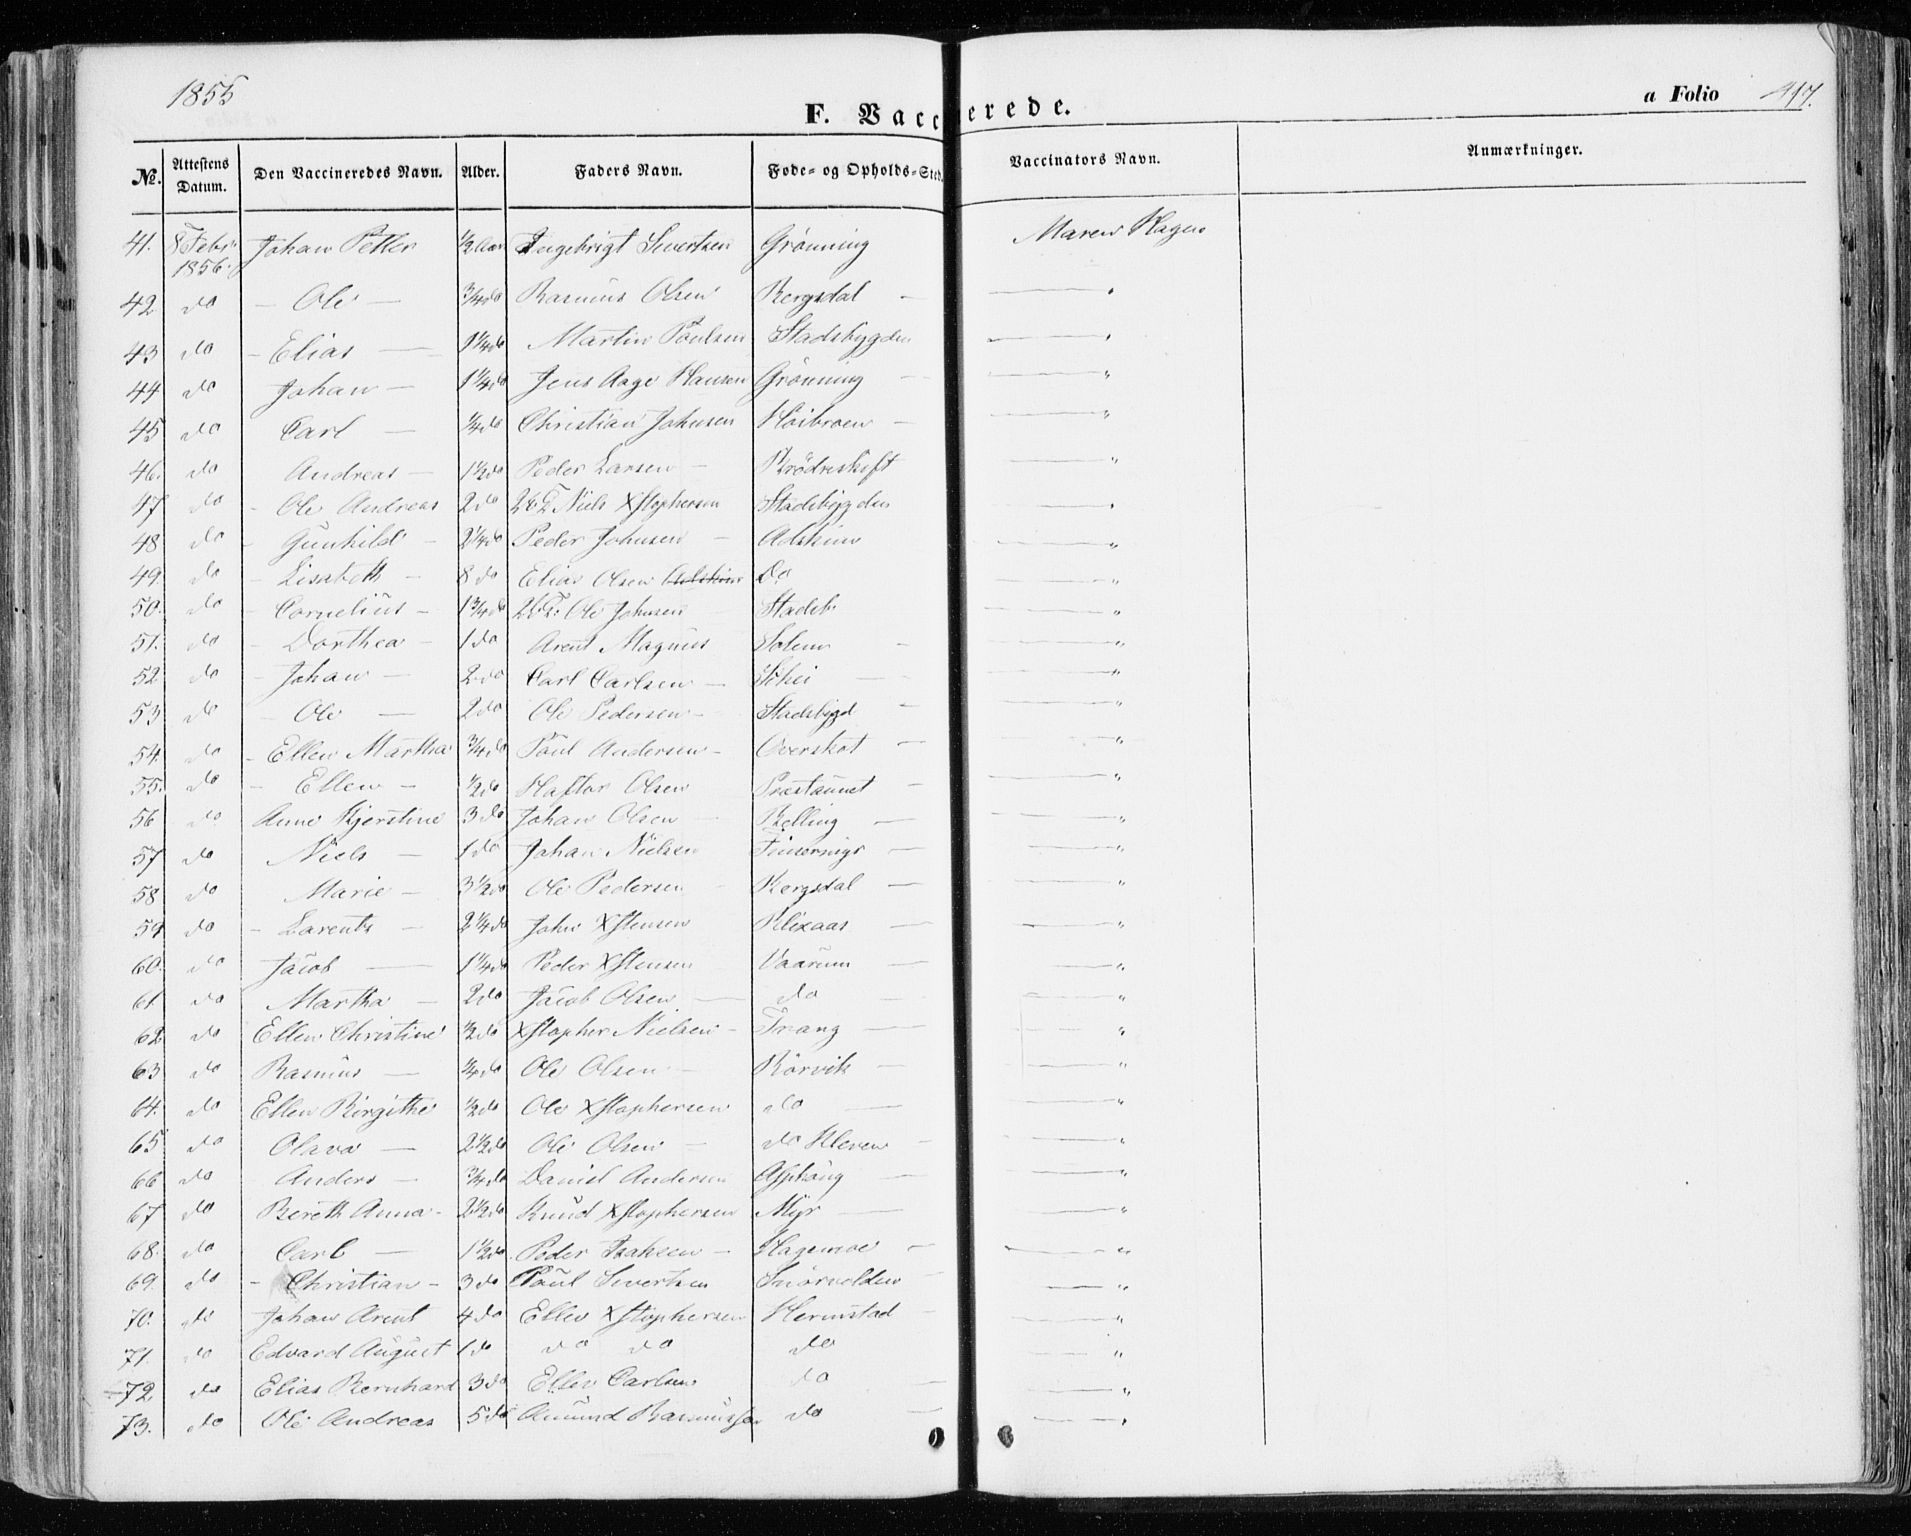 1855
F. Vaccinerede.
a Folio 417.
No. Attestens Datum. Den Vaccineredes Navn. Alder. Faders Navn. Føde- og Opholds-Sted. Vaccinators Navn. Anmærkninger.
41. 8 Febr. 1856. Johan Petter 1/2 Aar Ingebrigt Sivertsen Grønning Maren Hagen
42 do - Ole - 3/4 do Rasmus Olsen Bergsdal - — "
43 do - Elias — 1 1/4 do Martin Poulsen Stadsbygden — "
44 do Johan - 1 1/4 do Jens Aage Hansen Grønning — — "
45 do Carl — 1/4 do Christian Johnsen Høibroen - — "
46. do Andreas - 1 1/2 do Peder Larsen - Brødreskift — "
47 do - Ole Andreas 2 do Niels Xstophersen Stadsbygden — "
48 do - Gunhild - 2 1/4 do Peder Johnsen - Adskin — "
49. do - Lisabeth - 8 do Elias Olsen Do — "
50. do - Cornelius - 1 3/4 do Ole Johnsen Stadsb. — "
51. do - Dorthea - 1 do Arent Magnus Solem - — "
52 do - Johan - 2 do Carl Carlsen — Schei — — "
53 do - Ole — 2 do Ole Pedersen - Stadsbygd - — "
54. do - Ellen Martha 3/4 do Poul Andersen - Overskot — — "
55. do - Ellen - 1/2 do Haftor Olsen Præstaunet - — "
56 do Anne Kjerstine 3 do Johan Olsen - Belling — — "
57 do Niels — 1 do Johan Nielsen — — "
58 do Marie - 3 1/2 do Ole Pedersen - Bergsdal — — "
59 do - Larents - 2 1/4 do John Xstensen Klixaas — — "
60. do Jacob — 1 1/4 do Peder Xstensen Vaarum — — "
61 do Martha - 2 do Jacob Olsen — do - — "
62 do Ellen Christine 1/2 do Xstopher Nielsen - Trang — "
63 do Rasmus — 3/4 do Ole Olsen - Rørvik - — "
64. do Ellen Birgithe 1/2 do Ole Xstophersen do — — "
65 do Olava — 2 1/2 do Ole Olsen - do Kleven - — "
66 do Anders - 3/4 do Daniel Andersen Asphaug — — "
67 do Bereth Anna - 2 1/2 do Knud Xstophersen Myr — — "
68. do Carl — 1 1/2 do Peder Isaksen - Hagemoe - — "
69. do - Christian - 3 do Poul Sivertsen - — "
70. do Johan Arent 4 do Ellev Xstophersen Hermstad - — "
71. do Edvard August 1 do do do do — "
72 do Elias Bernhard 3 do Ellev Carlsen do - — "
73. do Ole Andreas 5 do Amund Rasmussen do - — "